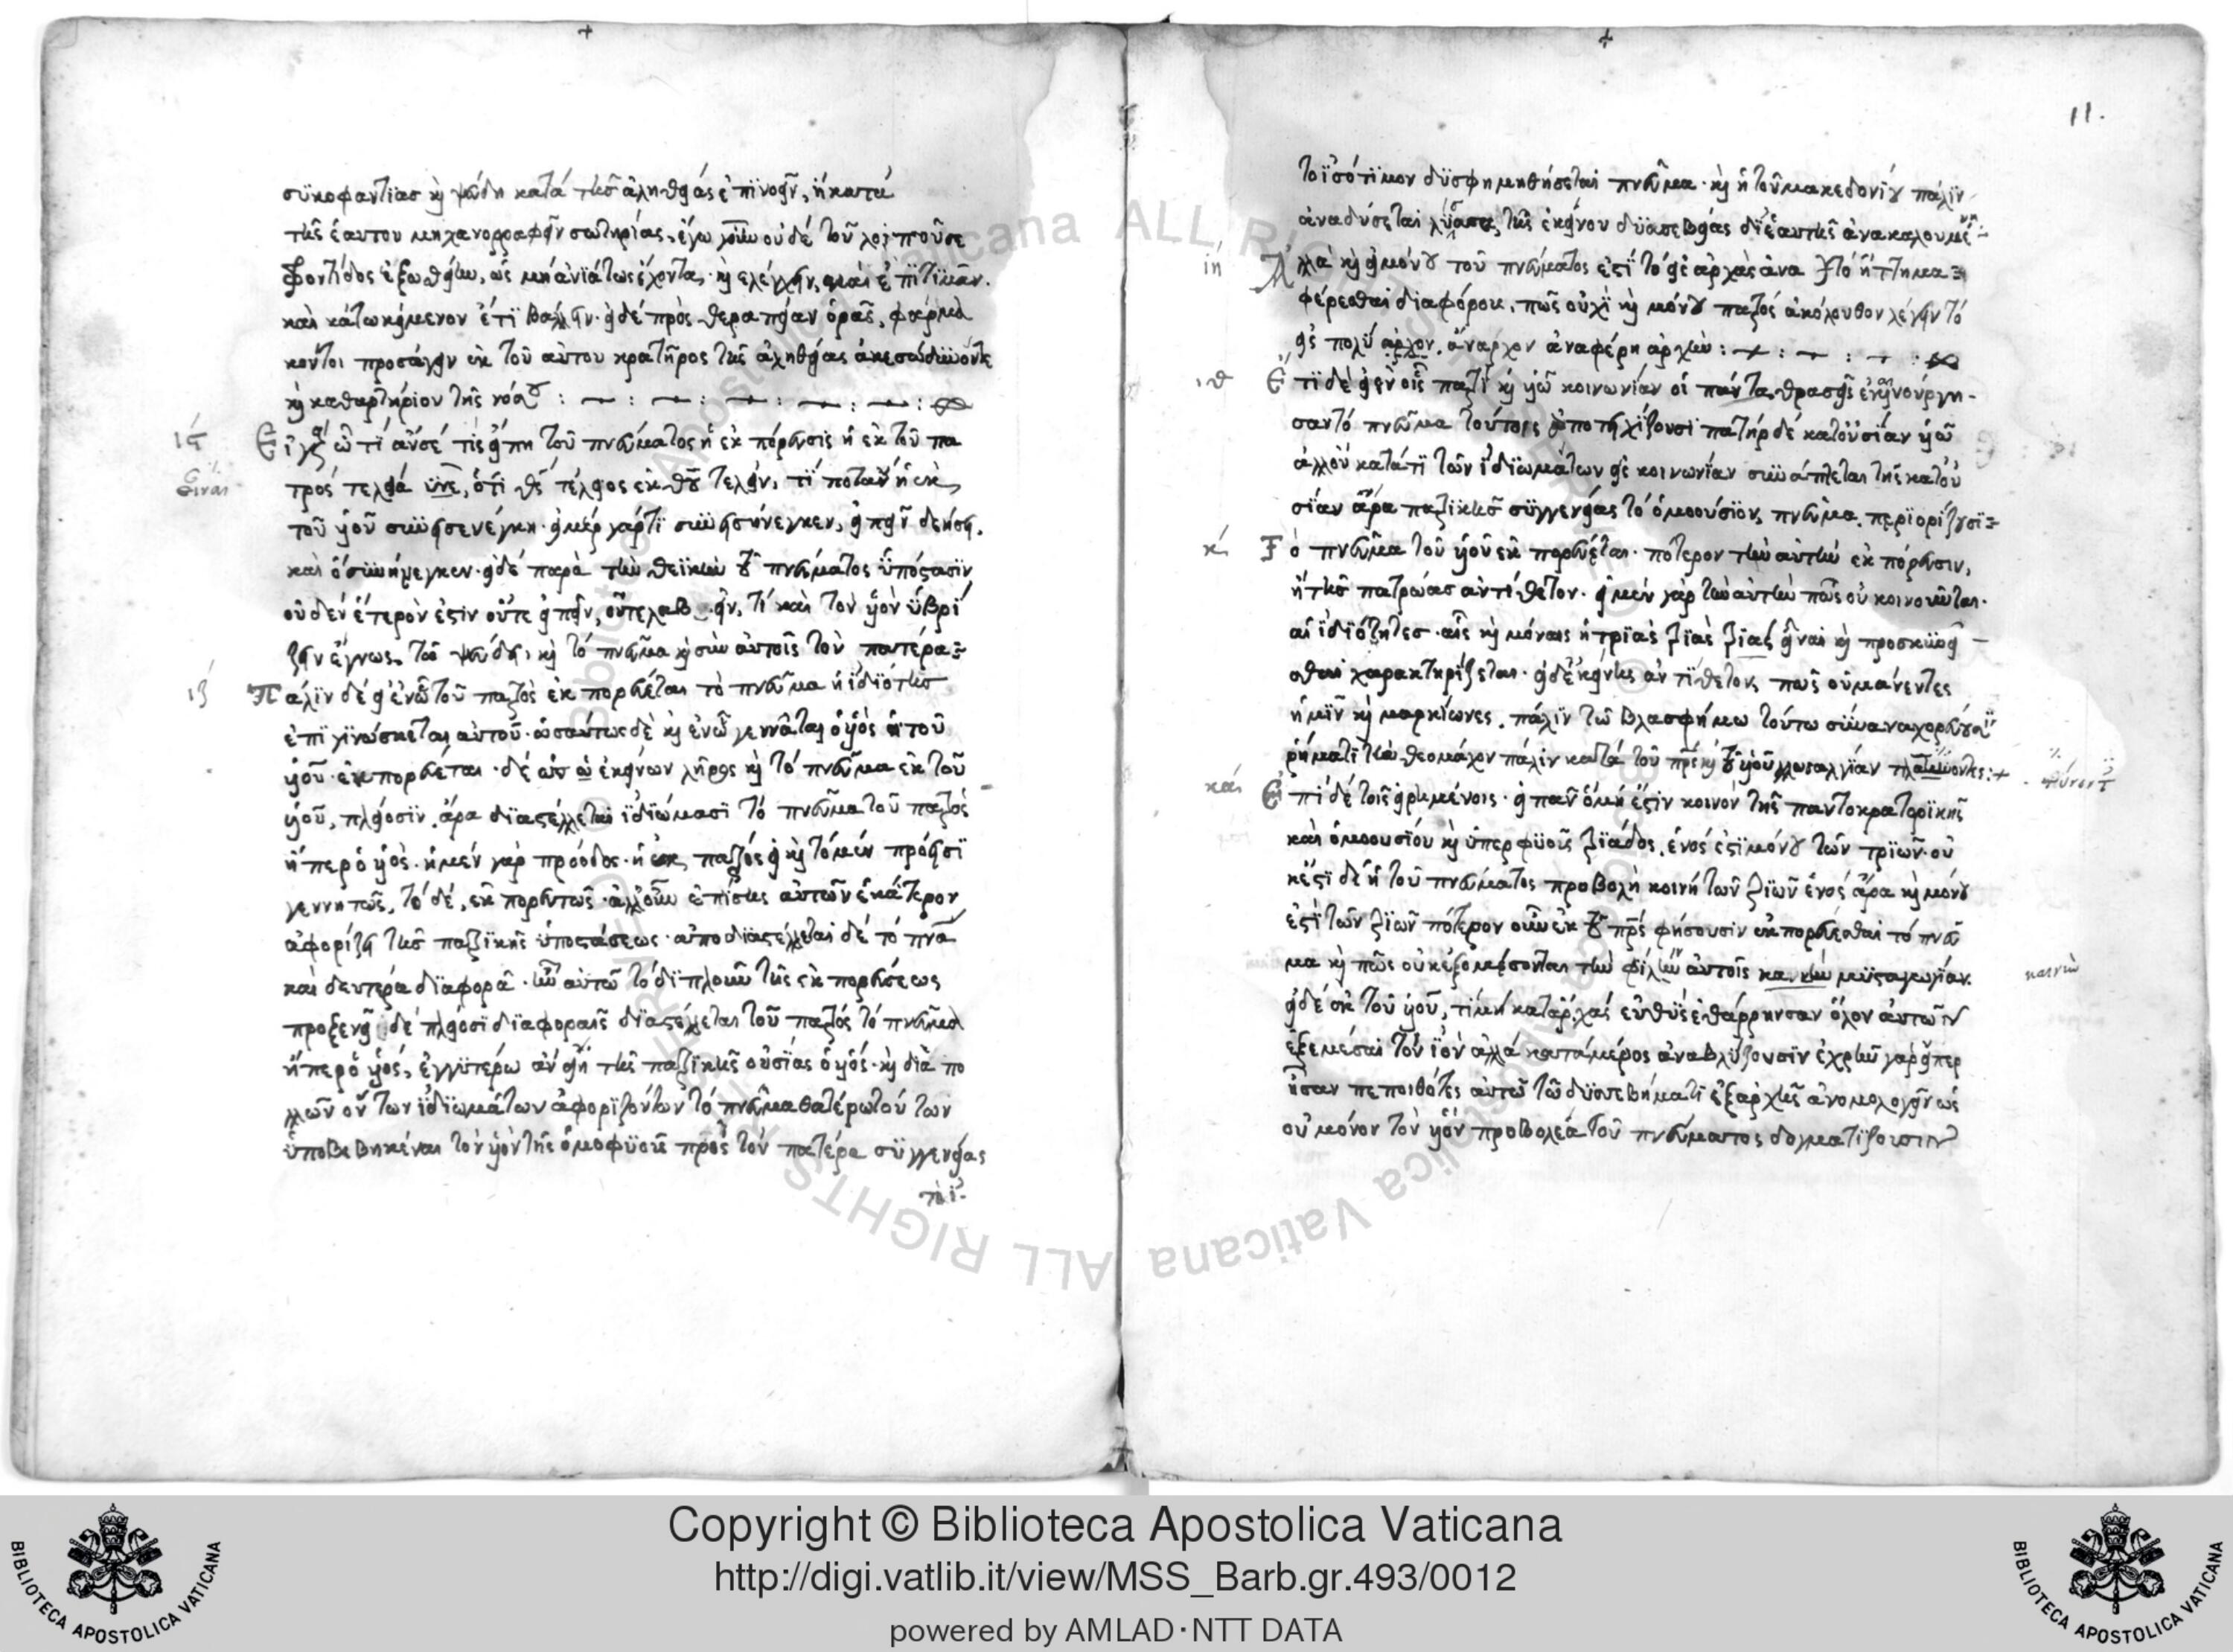 συκοφαντίας κὴ ψεύδη κατὰ τῆς ἀληθείας ἐπινοεῖν, ἢ κατὰ
τῆς ἑαυτοῦ μηχανορραφεῖν σωτηρίας. ἐγὼ οὐδὲ τοῦ λοιποῦ σε
φροντίδος ἐξωθοίην, ὡς μὴ ἀνιάτως ἔχοντα· κὴ ἐλέγχειν, καὶ ἐπιτιμᾶν.
καὶ κάτω κείμενον ἔτι βάλλειν· εἰ δὲ πρὸς θεραπείαν ὁρᾷς, φάρμα
κόν τοι προσάγειν ἐκ τοῦ αὐτοῦ κρατῆρος τῆς ἀληθείας
κὴ καθαρτήριον τῆς νόσου :
ις Εἰ γὰρ ᾧ τι ἄν σέ τις εἴπῃ τοῦ πνεύματος ἡ ἐκπόρευσις ἡ ἐκ τοῦ πα
εἶναι τρὸς τελεία ὅτι θεὸς τέλειος ἐκ θεοῦ τελείου, τί ποτ' ἂν ἡ ἐκ
τοῦ υἱοῦ συνεισενέγκῃ· εἰ μὲν γάρ τι συνεισήνεγκεν, εἰπεῖν δεήσει,
καὶ ὃ συνήνεγκεν· εἰ δὲ παρὰ τὴν θεϊκὴν τοῦ πνεύματος ὑπόστασιν
οὐδὲν ἕτερόν ἐστιν οὔτε εἰπεῖν, οὔτε λαβεῖν, τί καὶ τὸν υἱὸν ὑβρί
ζειν ἔγνως τῷ ψεύδει, κὴ τὸ πνεῦμα κὴ σὺν αὐτοῖς τὸν πατέρα
ιζ Πάλιν δὲ εἰ ἐν ᾧ τοῦ πατρὸς ἐκπορεύεται τὸ πνεῦμα ἡ ἰδιότης
ἐπιγινώσκεται αὐτοῦ· ὡσαύτως δὲ κὴ ἐν ᾧ γεννᾶται ὁ υἱὸς ἡ τοῦ
υἱοῦ· ἐκπορεύεται δὲ ὡς ὁ ἐκείνων λῆρος κὴ τὸ πνεῦμα ἐκ τοῦ
υἱοῦ, πλείοσιν ἄρα διαστέλλεται ἰδιώμασι τὸ πνεῦμα τοῦ πατρὸς
ἤπερ ὁ υἱός· ἡ μὲν γὰρ πρόοδος ἡ ἐκ πατρὸς εἰ κὴ τὸ μὲν πρόεισι
γεννητῶς, τὸ δὲ, ἐκπορευτῶς· ἀλλ' οὖν ἐπίσης αὐτῶν ἑκάτερον
ἀφορίζει τῆς πατρικῆς ὑποστάσεως· ἀποδιαστέλλεται δὲ τὸ πνεῦμα
καὶ δευτέρα διαφορᾷ· ἣν αὐτῷ τὸ διπλοῦν τῆς ἐκπορεύσεως
προξενεῖ εἰ δὲ πλείοσι διαφοραῖς διαστέλλεται τοῦ πατρὸς τὸ πνεῦμα
ἤπερ ὁ υἱός, ἐγγυτέρω ἂν εἴη τῆς πατρικῆς οὐσίας ὁ υἱός· κὴ διὰ πο
λλῶν ὄντων ἰδιωμάτων ἀφοριζόντων τὸ πνεῦμα θατέρῳ τούτων
ὑποβεβηκέναι τὸν υἱὸν τῆς ὁμοφυοῦς πρὸς τὸν πατέρα συγγενείας
τὸ ἰ
11.
τὸ ἰσότιμον δυσφημηθήσεται πνεῦμα· κὴ ἡ τοῦ μακεδονίου πάλιν
ἀναδύσεται λύσσα τῆς ἐκείνου δυσσεβείας δι' ἑαυτῆς ἀνακαλουμένη
ιη Ἀλλὰ κὴ εἰ μόνου τοῦ πνεύματός ἐστι τὸ εἰς ἀρχὰς ἀνα τὸ ἥττημα
φέρεσθαι διαφόρους, πῶς οὐχὶ κὴ μόνου πατρὸς ἀκόλουθον λέγειν τὸ
εἰς πολύαρχον, ἄναρχον ἀναφέρειν ἀρχήν :
ιθ Ἔτι δὲ εἰ ἐν οἷς πατρὶ κὴ υἱῷ κοινωνίαν οἱ πάντα θρασεῖς ἐκαινούργη
σαν τὸ πνεῦμα τούτοις ἀποτειχίζουσι πατὴρ δὲ κατ' οὐσίαν υἱῷ
ἀλλ' οὐ κατά τι τῶν ἰδιωμάτων εἰς κοινωνίαν συνάπτεται τῆς κατ' οὐ
σίαν ἄρα πατρικῆς συγγενείας τὸ ὁμοούσιον πνεῦμα περιορίζουσι
κ Τὸ πνεῦμα τοῦ υἱοῦ ἐκπορεύεται· πότερον τὴν αὐτὴν ἐκπόρευσιν,
ἢ τῆς πατρῴας ἀντίθετον· εἰ μὲν γὰρ τὴν αὐτὴν πῶς οὐ κοινοῦνται
αἱ ἰδιότητες· αἷς κὴ μόναις ἡ τριὰς τριὰς εἶναι κὴ προσκυνεῖ
σθαι χαρακτηρίζεται· εἰ δὲ ἐκείνης ἀντίθετον, πῶς οὐ μάνεντες
ἡμῖν κὴ μαρκίωνες πάλιν τῷ βλασφήμῳ τούτῳ συναναχορεύου
ρήματι τὴν θεομάχον πάλιν κατὰ τοῦ πατρὸς κὴ τοῦ υἱοῦ γλωσσαλγίαν
κα Ἐπὶ δὲ τοῖς εἰρημένοις· εἰ πᾶν ὃ μή ἐστιν κοινὸν τῆς παντοκρατορικῆς
καὶ ὁμοουσίου κὴ ὑπερφυοῦς τριάδος, ἑνός ἐστι μόνου τῶν τριῶν· οὐ
κ ἔστι δὲ ἡ τοῦ πνεύματος προβολὴ κοινὴ τῶν τριῶν ἑνὸς ἄρα κὴ μόνου
ἐστὶ τῶν τριῶν πότερον οὖν ἐκ τοῦ πατρὸς φήσουσιν ἐκπορεύεσθαι τὸ πνεῦ
μα κὴ πῶς οὐκ ἐξομοῦνται τὴν φίλην αὐτοῖς καινὴν μυσταγωγίαν. καινὴν
εἰ δὲ ἐκ τοῦ υἱοῦ, τί μὴ κατ' ἀρχὰς εὐθὺς ἐθάρρησαν ὅλον αὐτῶν
ἐξεμέσαι τὸν ἰὸν ἀλλὰ κατὰ μέρος ἀναβλύζουσιν ἐχρῆν γὰρ εἴπερ
ἦσαν πεποιθότες αὐτῷ τῷ δυσσεβήματι ἐξ ἀρχῆς ἀνομολογεῖν ὡς
οὐ μόνον τὸν υἱὸν προβολέα τοῦ πνεύματος δογματίζουσιν
Copyright © Biblioteca Apostolica Vaticana
http://digi.vatlib.it/view/MSS_Barb.gr.493/0012
powered by AMLAD·NTT DATA